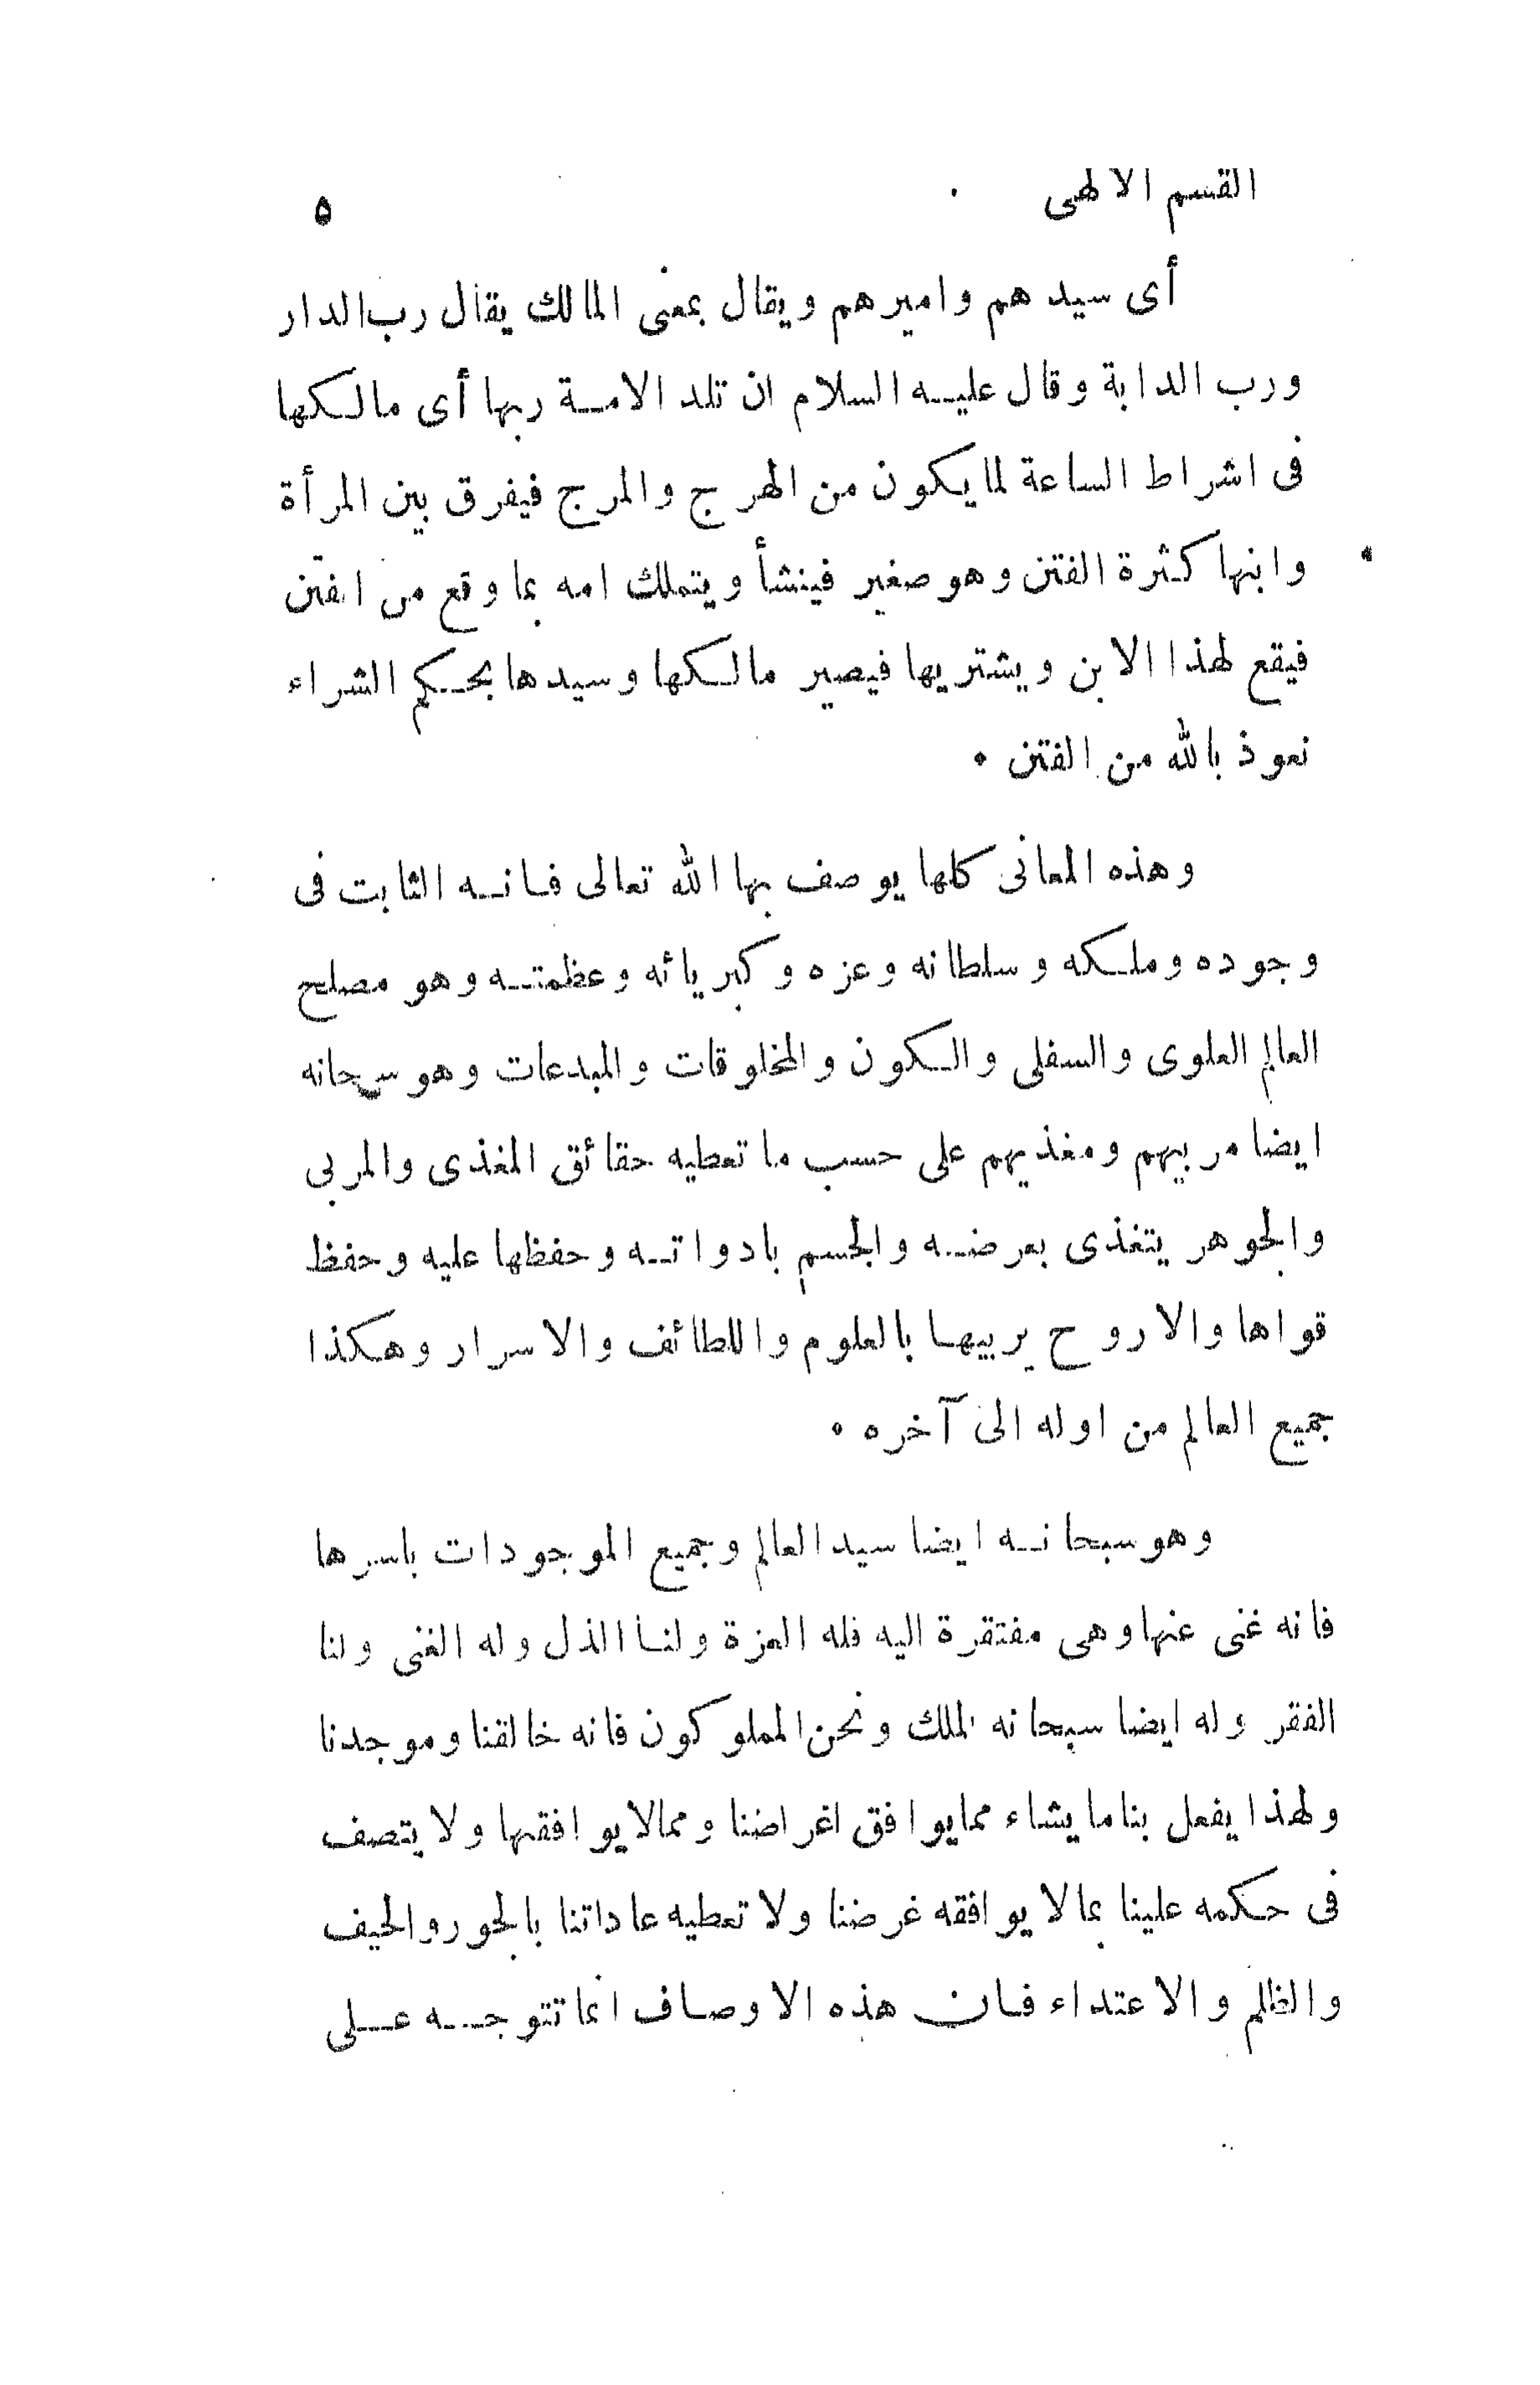 القسم الالهى
٥
أى سيدهم واميرهم ويقال بمعنى المالك يقال رب الدار
ورب الدابة وقال عليه السلام ان تلد الامة ربها أى مالكها
فى اشراط الساعة لما يكون من الهرج والمرج فيفرق بين المرأة
وابنها كثرة الفتن وهو صغير فينشأ ويتملك امه بما وقع من الفتن
فيقع لهذا الابن ويشتريها فيصير مالكها وسيدها بحكم الشراء
نعوذ بالله من الفتن ٠
وهذه المعانى كلها يوصف بها الله تعالى فانه الثابت فى
وجوده وملكه وسلطانه وعزه وكبريائه وعظمته وهو مصلح
العالم العلوى والسفلى والكون والمخلوقات والمبدعات وهو سبحانه
ايضا مربيهم ومغذيهم على حسب ما تعطيه حقائق المغذى والمربى
والجوهر يتغذى بعرضه والجسم بادواته وحفظها عليه وحفظ
قواها والاروح يربيها بالعلوم واللطائف والاسرار وهكذا
جميع العالم من اوله الى آخره ٠
وهو سبحانه ايضا سيد العالم وجميع الموجودات باسرها
فانه غنى عنها وهى مفتقرة اليه فله العزة ولنا الذل وله الغنى ولنا
الفقر وله ايضا سبحانه الملك ونحن المملوكون فانه خالقنا وموجدنا
ولهذا يفعل بنا ما يشاء مما يوافق اغراضنا ومما لا يوافقها ولا يتصف
فى حكمه علينا بما لا يوافقه غرضنا ولا تعطيه عاداتنا بالجور والحيف
والظلم والاعتداء فان هذه الاوصاف انما تتوجه على